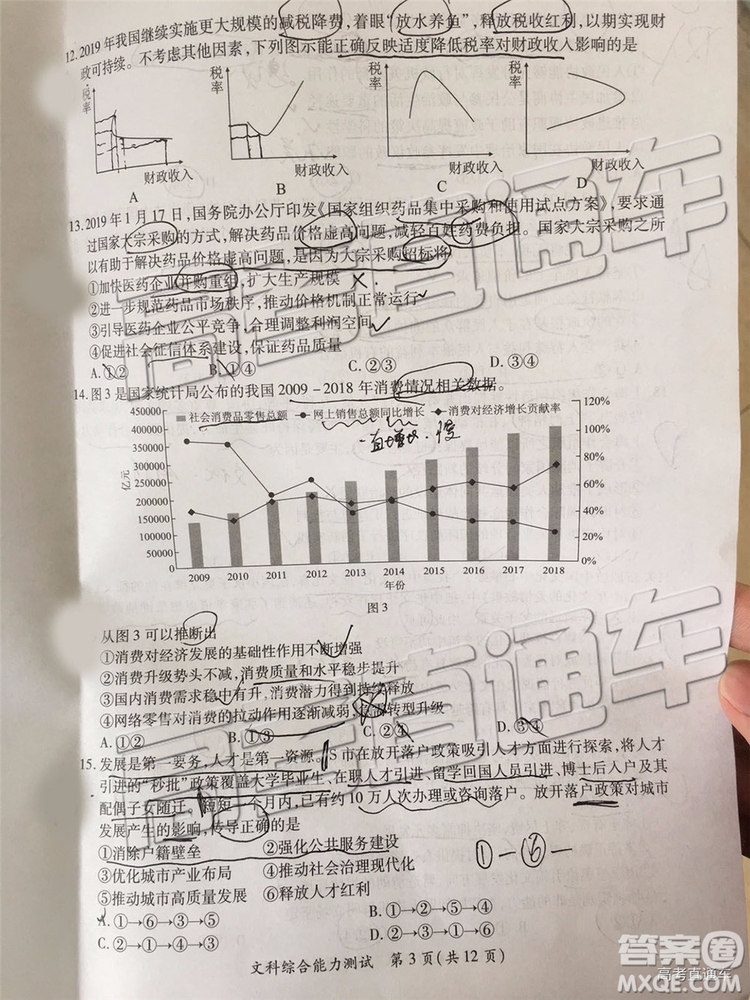 12. 2019年我国继续实施更大规模的减税降费,着眼“放水养鱼”,释放税收红利,以期实现财
政可持续。不考虑其他因素,下列图示能正确反映适度降低税率对财政收入影响的是
税率 税率 税率 税率
财政收入 财政收入 财政收入 财政收入
A B C D
13. 2019年1月17日,国务院办公厅印发《国家组织药品集中采购和使用试点方案》,要求通
过国家大宗采购的方式,解决药品价格虚高问题,减轻百姓药费负担。国家大宗采购之所
以有助于解决药品价格虚高问题,是因为大宗采购招标将
①加快医药企业并购重组,扩大生产规模
②进一步规范药品市场秩序,推动价格机制正常运行
③引导医药企业公平竞争,合理调整利润空间
④促进社会征信体系建设,保证药品质量
A.①② B.①④ C.②③ D.③④
14. 图3是国家统计局公布的我国2009-2018年消费情况相关数据。
社会消费品零售总额 网上销售总额同比增长 消费对经济增长贡献率
450000 120%
400000
350000 100%
300000 80%
250000
200000 60%
150000 40%
100000
50000 20%
0 0%
亿元
2009 2010 2011 2012 2013 2014 2015 2016 2017 2018
年份
图3
从图3可以推断出
①消费对经济发展的基础性作用不断增强
②消费升级势头不减,消费质量和水平稳步提升
③国内消费需求稳中有升,消费潜力得到持续释放
④网络零售对消费的拉动作用逐渐减弱,转型升级
A.①② B.①③ C.②④ D.③④
15. 发展是第一要务,人才是第一资源。S市在放开落户政策吸引人才方面进行探索,将人才
引进的“秒批”政策覆盖大学毕业生、在职人才引进、留学回国人员引进、博士后入户及其
配偶子女随迁。短短一个月内,已有约10万人次办理或咨询落户。放开落户政策对城市
发展产生的影响,传导正确的是
①消除户籍壁垒 ②强化公共服务建设
③优化城市产业布局 ④推动社会治理现代化
⑤推动城市高质量发展 ⑥释放人才红利
①-⑥-
A.①→⑥→③→⑤ B.①→②→④→⑤
C.②→①→③→④ D.②→①→⑥→⑤
文科综合能力测试 第3页(共12页)
高考直通车
答案圈
MXQE.COM
高考直通车